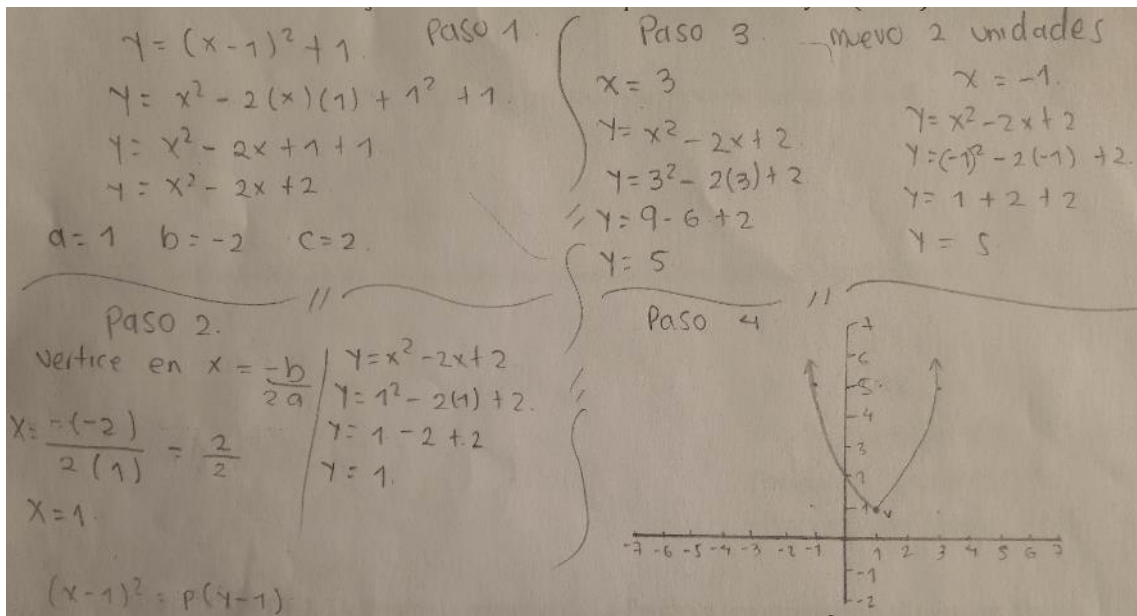 Paso 1.
y = (x-1)² + 1.
y = x² - 2(x)(1) + 1² + 1.
y = x² - 2x + 1 + 1
y = x² - 2x + 2
a = 1 b = -2 c = 2.
Paso 2.
vertice en x = -b/2a
x = -(-2)/2(1) = 2/2
x = 1.
y = x² - 2x + 2
y = 1² - 2(1) + 2.
y = 1 - 2 + 2
y = 1.
(x-1)² = p(y-1)
Paso 3. muevo 2 unidades
x = 3
y = x² - 2x + 2.
y = 3² - 2(3) + 2
y = 9 - 6 + 2
y = 5
x = -1.
y = x² - 2x + 2
y = (-1)² - 2(-1) + 2.
y = 1 + 2 + 2
y = 5
Paso 4
6
5
4
3
1
v
-7 -6 -5 -4 -3 -2 -1 1 2 3 4 5 6 7
-1
-2